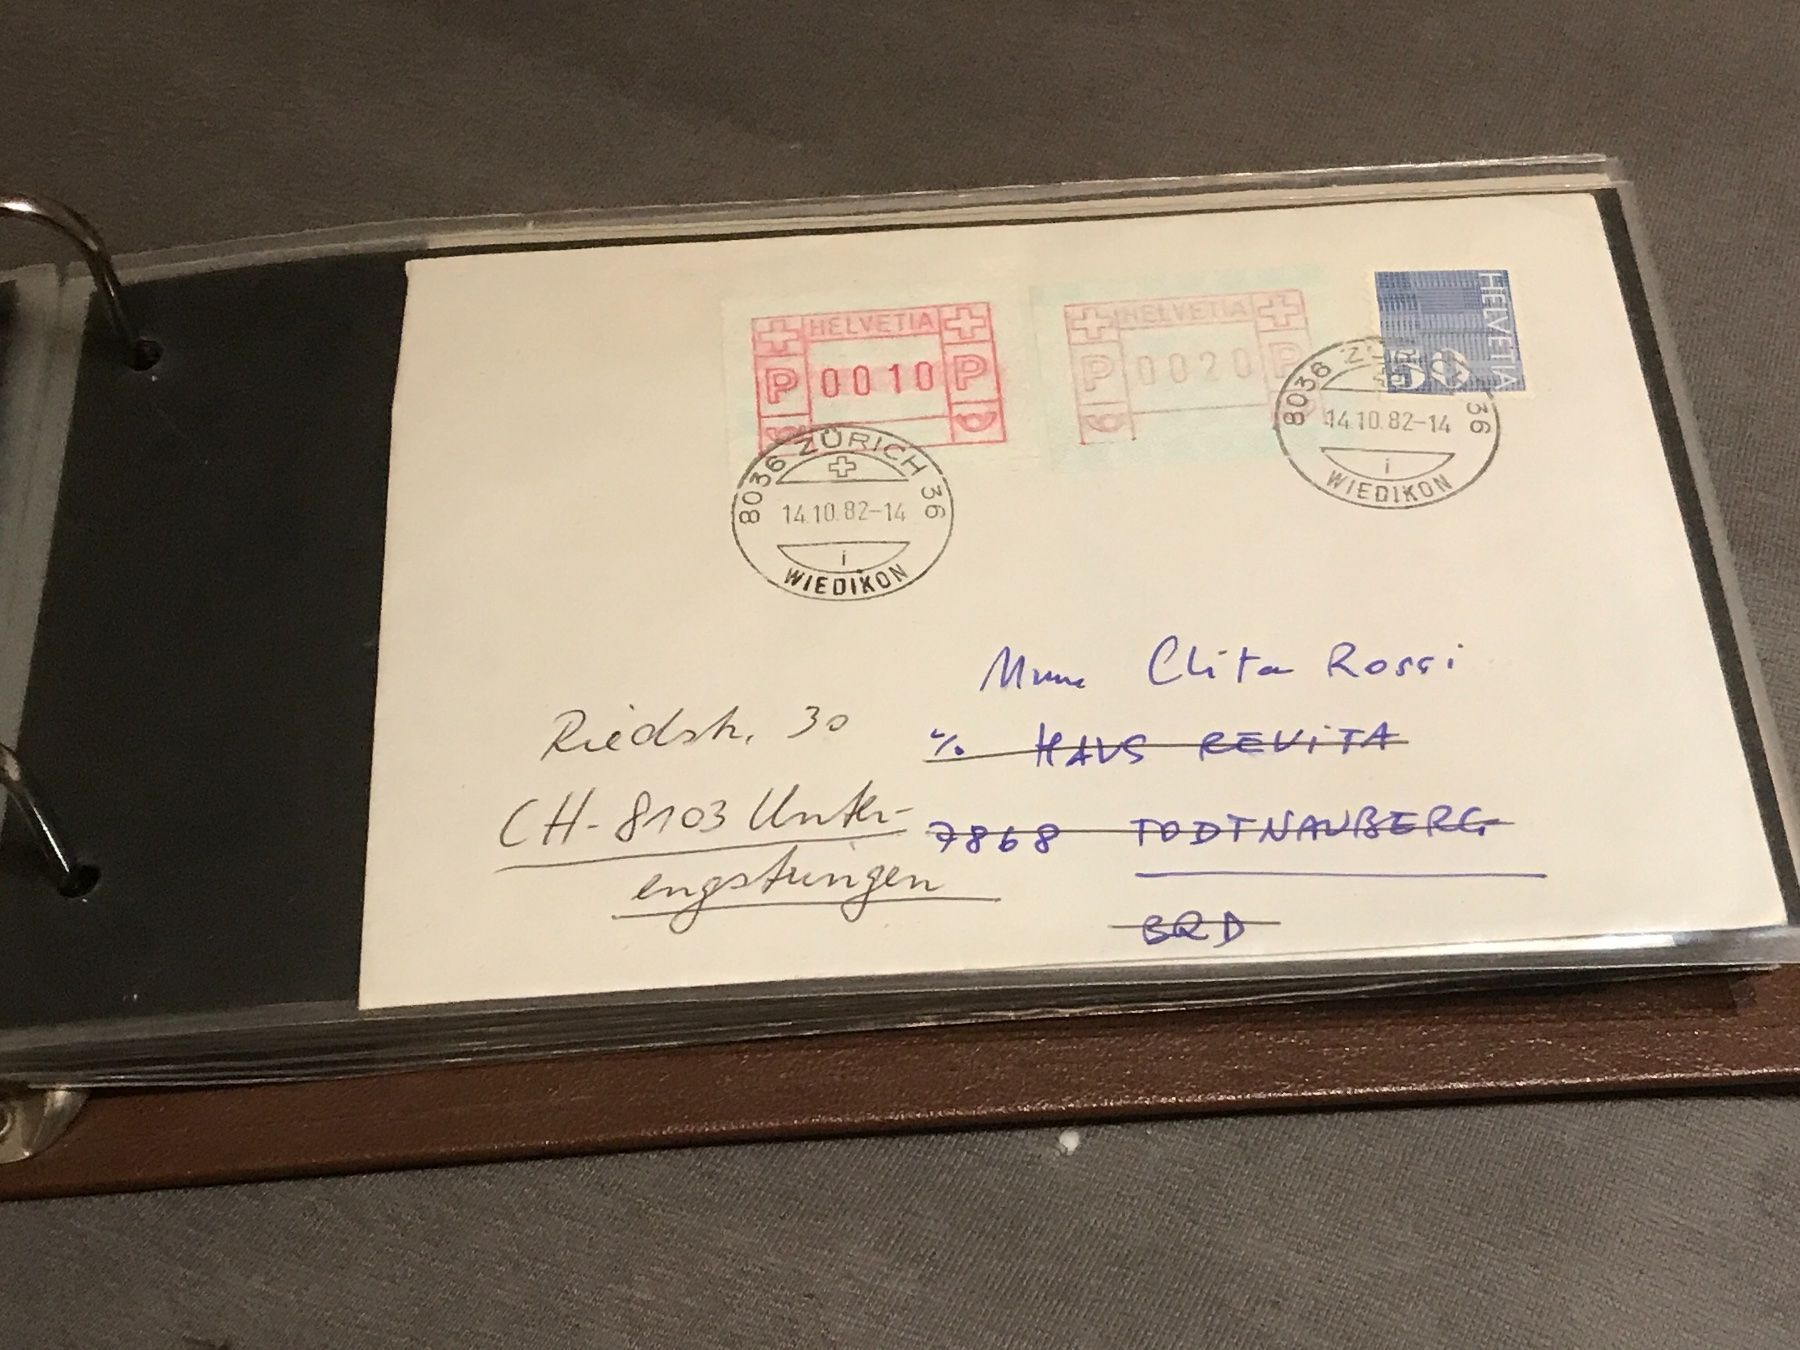 HELVETIA
P 0010 P
HELVETIA
P 0020 P
HELVETIA
50
8036 ZÜRICH 36
14.10.82-14
i
WIEDIKON
8036 ZÜR 36
14.10.82-14
i
WIEDIKON
Mme Clita Rossi
c/o HAUS REVITA
7868 TODTNAUBERG
BRD
Riedstr. 30
CH-8103 Unter-
engstringen